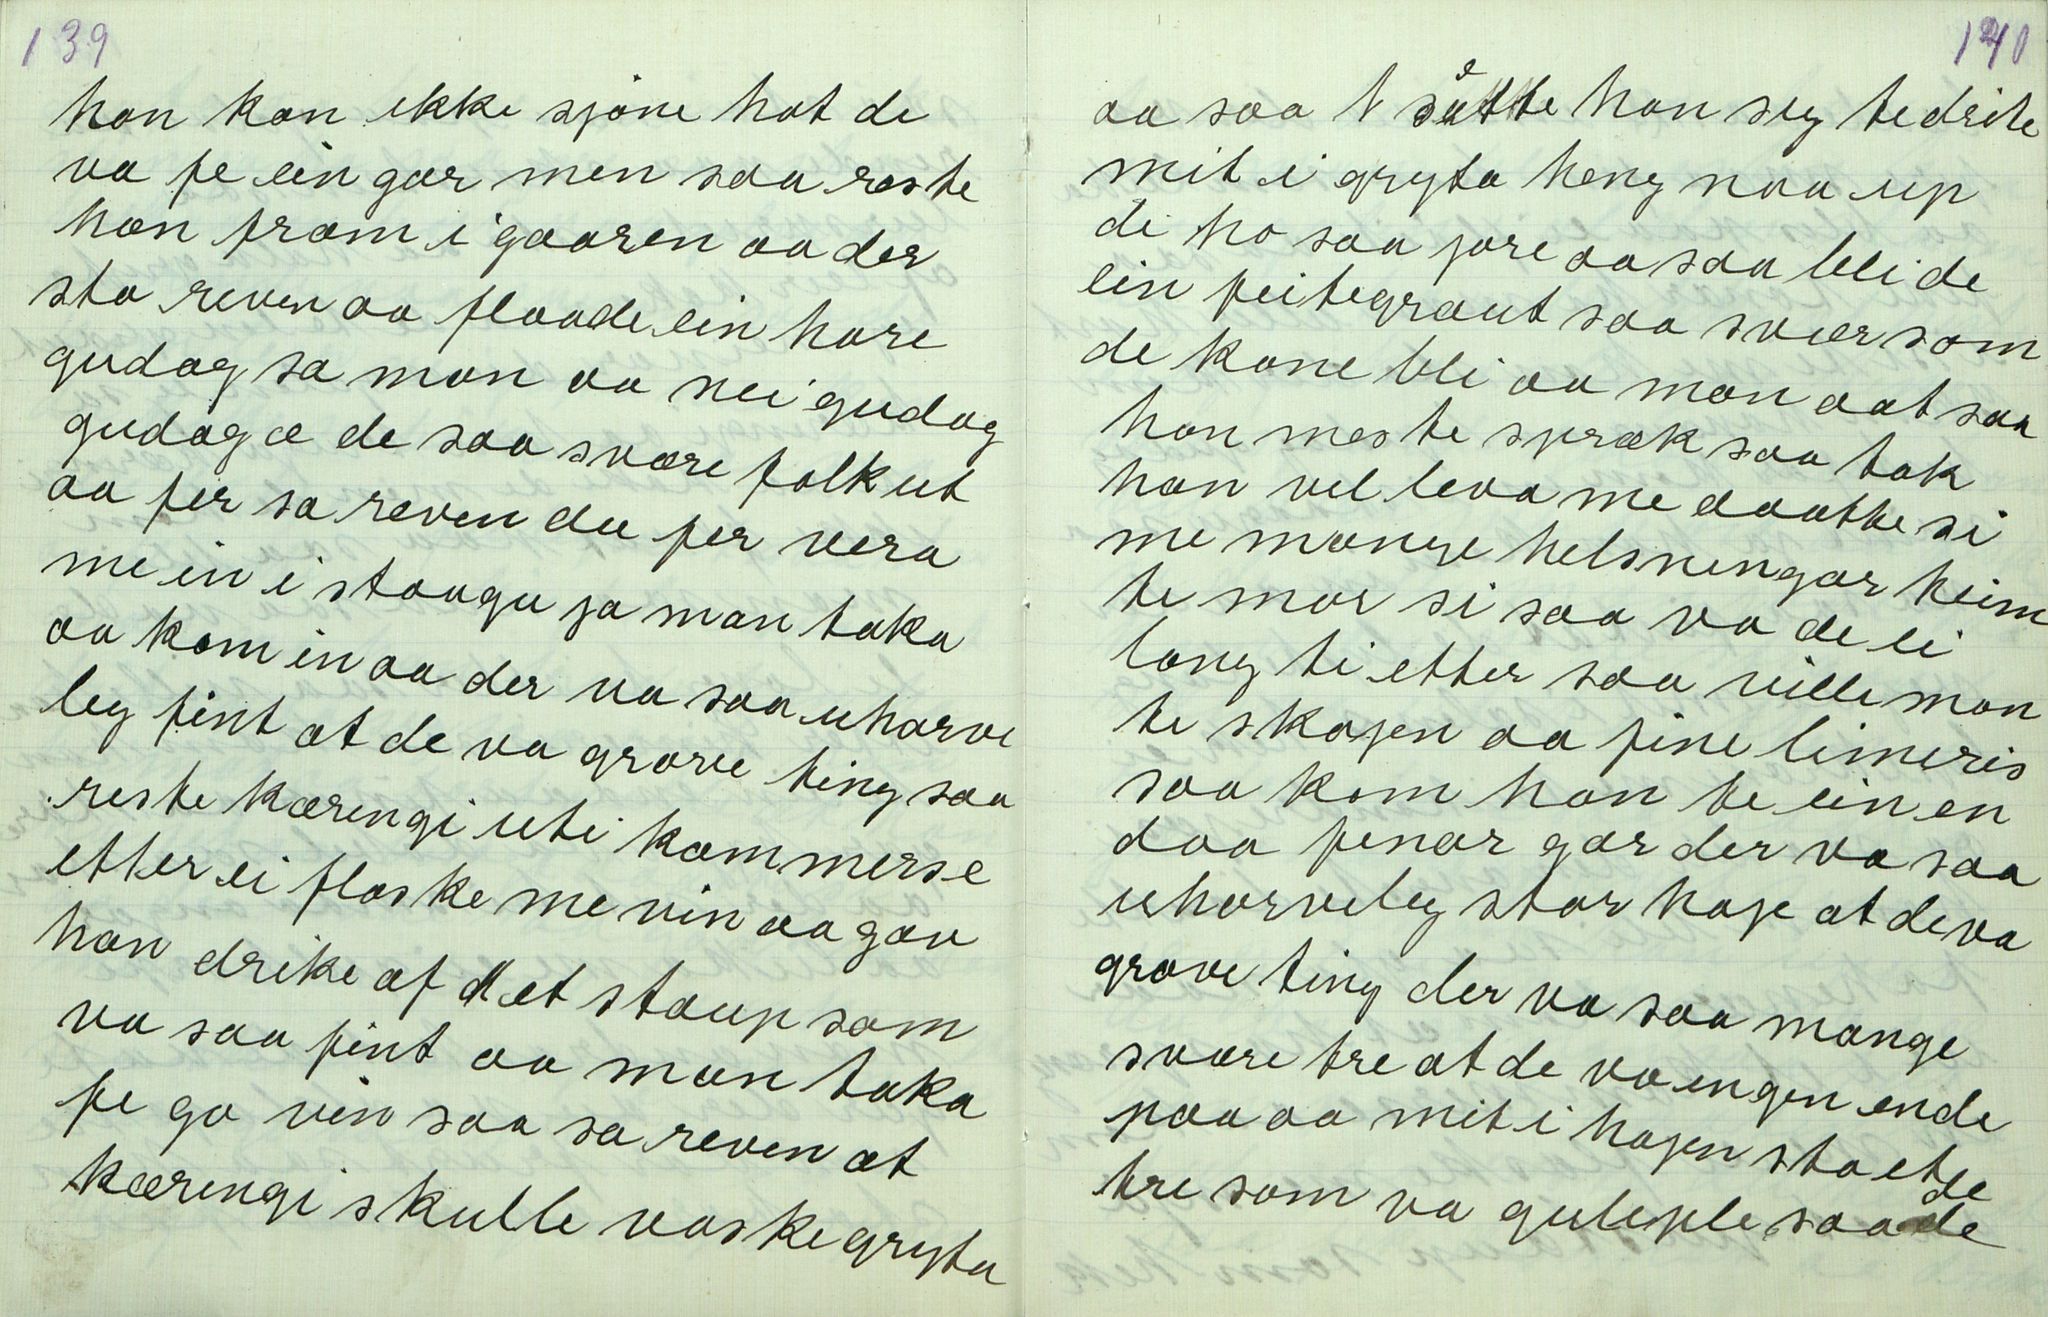 139
han kan ikke sjöne hot de
va fe ein gar men saa raste
han fram i gaaren aa der
sto reven aa flaade ein hare
gudag sa man aa nei gudag
gudag æ de saa svære folk ut
aa fer sa reven du fer vera
me in i staagu ja man taka
aa kom in aa der va saa uharve
leg fint at de va grove ting saa
reste kæringi uti kammerse
etter ei flaske me vin aa gav
han drike af et staup som
va saa fint aa man taka
fe go vin saa sa reven at
kæringi skulle vaske gryta
140
aa saa sette han seg te drite
mit i gryta heng naa up
di ho saa jore aa saa blei de
ein feitegraut saa svær som
de kane bli aa man aat saa
han meste spræk saa tak
han vel leva me daatte si
me mange helsningar heim
te mor si saa va de ei
lang ti etter saa ville man
te skagen aa fine limeris
saa kom han te ein en
daa fenar gar der va saa
uharveleg star hage at de va
grove ting der va saa mange
svære tre at de va engen ende
paa aa mit i hagen sto etde
tre som va guleple saa de